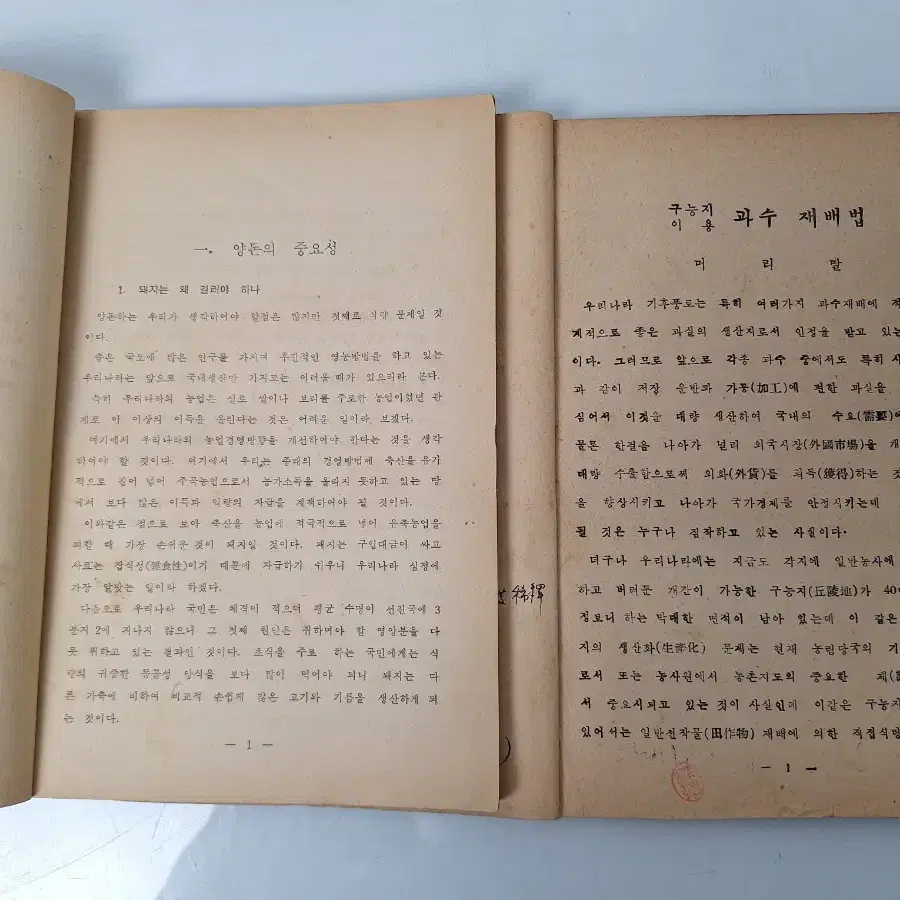 一. 양돈의 중요성
1. 돼지는 왜 길러야 하나
양돈하는 우리가 생각하여야 할점은 많지만 첫째로 식량 문제일 것
이다.
좁은 국토에 많은 인구를 가지며 후진적인 영농방법을 하고 있는
우리나라는 앞으로 국내생산만 가지고는 어려울 때가 있으리라 본다.
특히 우리나라의 농업은 실로 쌀이나 보리를 주로한 농업이었던 관
계로 이 이상의 이득을 올린다는 것은 어려운 일이라 보겠다.
여기에서 우리나라의 농업경영방향을 개선하여야 한다는 것을 생각
하여야 할 것이다. 여기에서 우리는 종래의 경영방법에 축산을 유기
적으로 집어 넣어 주곡농업으로서 농가소득을 올리지 못하고 있는 땅
에서 보다 많은 이득과 식량의 자급을 계책하여야 될 것이다.
이와같은 점으로 보아 축산을 농업에 적극적으로 넣어 유축농업을
꾀할 때 가장 손쉬운 것이 돼지일 것이다. 돼지는 구입대금이 싸고
사료는 잡식성(雜食性)이기 때문에 자급하기 쉬우니 우리나라 실정에
가장 알맞는 일이라 하겠다.
다음으로 우리나라 국민은 체격이 적으며 평균 수명이 선진국에 3
분지 2에 지나지 않으니 그 첫째 원인은 취하여야 할 영양분을 다
못 취하고 있는 결과인 것이다. 초식을 주로 하는 국민에게는 식
량의 귀중한 동물성 양식을 보다 많이 먹어야 되니 돼지는 다
른 가축에 비하여 비교적 손쉽게 많은 고기와 기름을 생산하게 되
는 것이다.
— 1 —
구능지
이 용 과수 재배법
머 리 말
우리나라 기후풍토는 특히 여러가지 과수재배에 적
계적으로 좋은 과실의 생산지로서 인정을 받고 있는
이다. 그러므로 앞으로 각종 과수 중에서도 특히 사
과 같이 저장 운반과 가공(加工)에 편한 과실을
심어서 이것을 대량 생산하여 국내의 수요(需要)에
물론 한걸음 나아가 널리 외국시장(外國市場)을 개
대량 수출함으로써 외화(外貨)를 획득(獲得)하는 것
을 향상시키고 나아가 국가경제를 안정시키는데
될 것은 누구나 짐작하고 있는 사실이다.
더구나 우리나라에는 지금도 각지에 일반농사에
하고 버려둔 개간이 가능한 구능지(丘陵地)가 40
정보나 하는 막대한 면적이 남아 있는데 이 같은
지의 생산화(生産化) 문제는 현재 농림당국의 기
로서 또는 농사원에서 농촌지도의 중요한 제(
서 중요시되고 있는 것이 사실인데 이같은 구능지
있어서는 일반전작물(田作物) 재배에 의한 직접식량
— 1 —